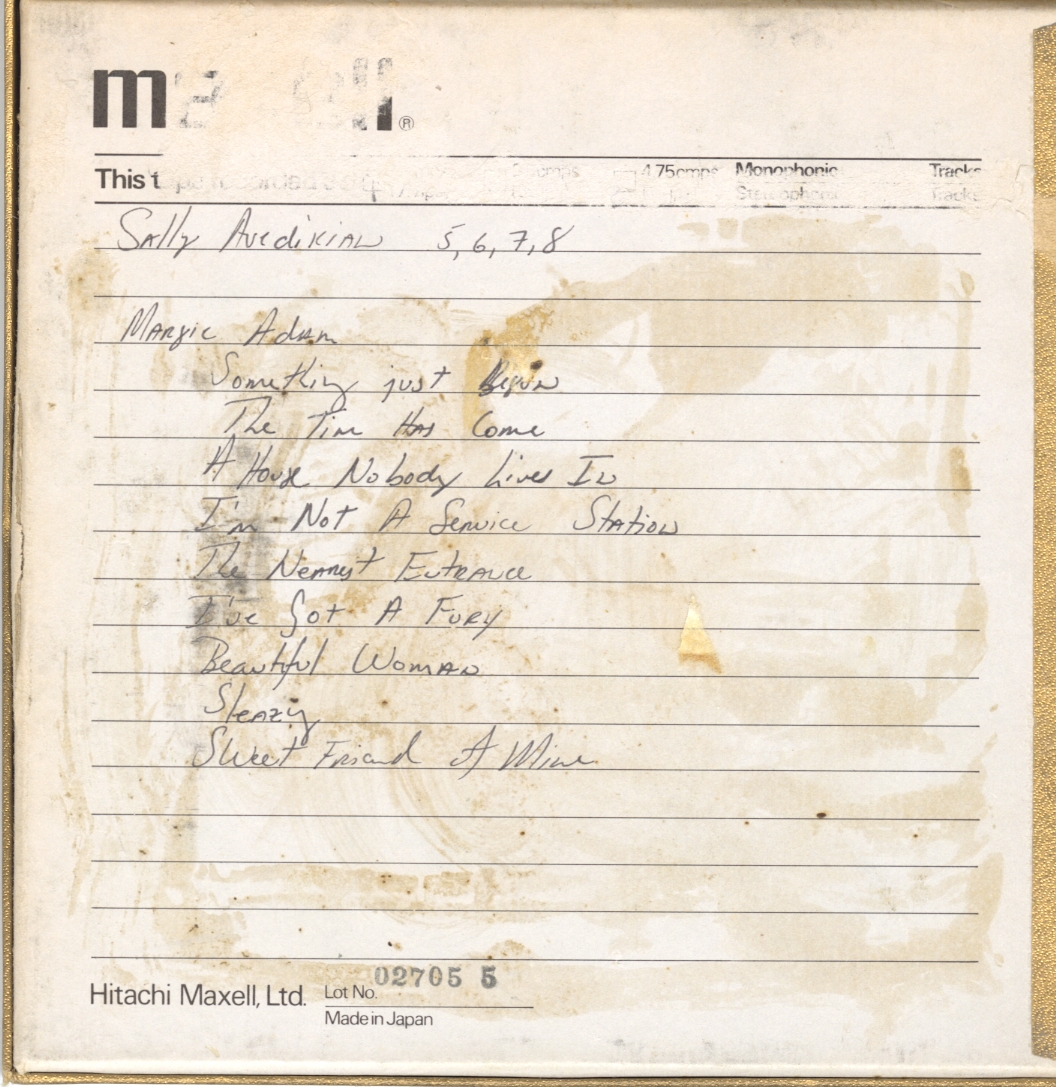 maxell®
This tape recorded 4.75cmps Monophonic Tracks
Stereophonic Tracks
Sally Avedikian 5, 6, 7, 8
Margie Adam
Something just Begun
The Time Has Come
A House Nobody Lives In
I'm Not A Service Station
The Nearest Entrance
I've Got A Fury
Beautiful Woman
Sleazy
Sweet Friend of Mine
02705 5
Hitachi Maxell, Ltd. Lot No.
Made in Japan